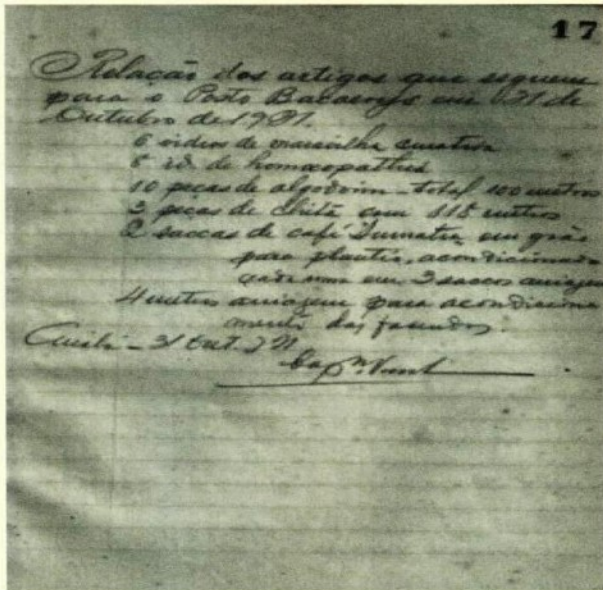 17
Relação dos artigos que seguem
para o Posto em 31 de
Outubro de 1921.
6 vidros de maravilha curativa
6 id. de homœopathia
10 peças de algodoim - total 100 metros
3 peças de chita com 115 metros
2 saccas de café Sumatra em grão
para plantio, acondicionada
cada uma em 3 saccos aniagem
4 metros aniagem para acondiciona
mento das fazendas.
31 Out.